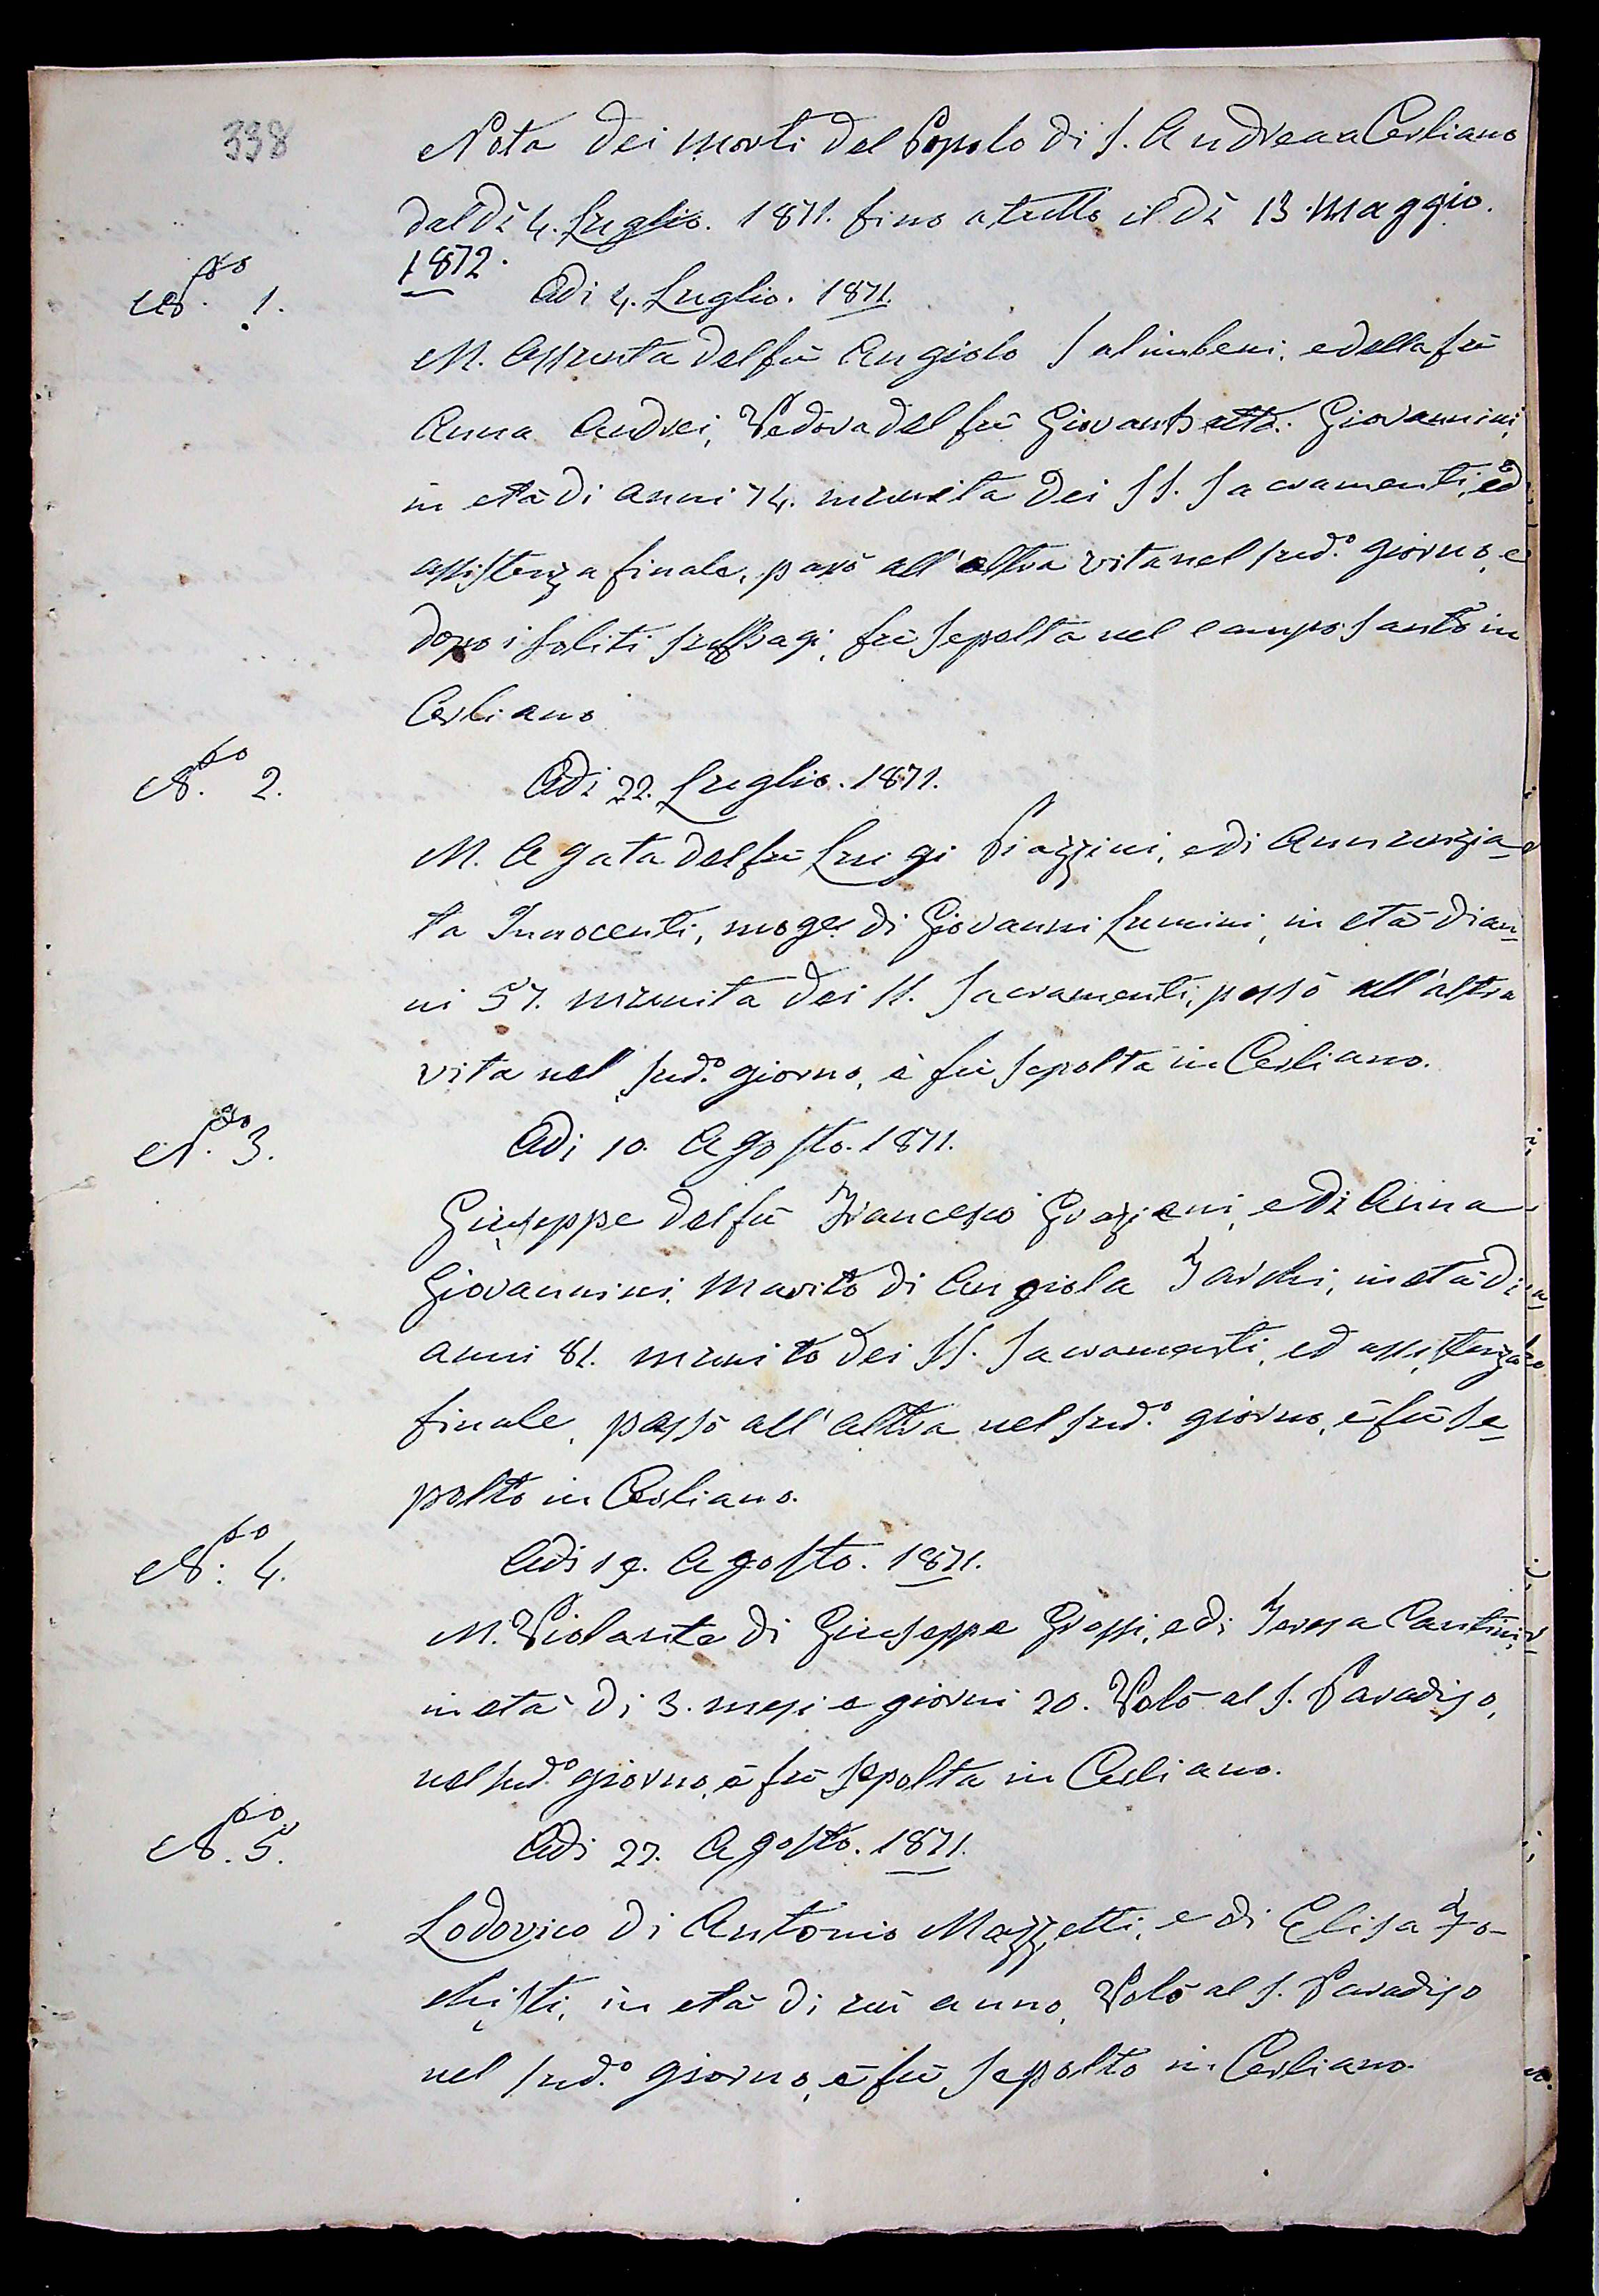 338
Nota dei morti del Popolo di S. Andrea a Cerliano
dal dì 4. Luglio. 1871. fino a tutto il dì 13. Maggio.
1872.
N.ro 1.
Adi 4. Luglio. 1871.
M. Assunta del fù Angiolo Salimbeni, e della fù
Anna Andrei, Vedova del fù Giovan Batta. Giovannini,
in età di anni 74. munita dei SS. Sacramenti, ed
assistenza finale, passò all'altra vita nel sud.o giorno, e
dopo i soliti suffragi, fù sepolta nel campo santo in
Cerliano
N.ro 2.
Adi 22. Luglio. 1871.
M. Agata del fù Luigi Piazzini, e di Annunzia-
ta Innocenti, moge di Giovanni Lumini, in età di an-
ni 57. munita dei SS. Sacramenti, passò all'altra
vita nel sud.o giorno, e fù sepolta in Cerliano.
N.ro 3.
Adi 10. Agosto. 1871.
Giuseppe del fù Francesco Graziani, e di Anna
Giovannini, Marito di Angiola Tarchi, in età di
anni 81. munito dei SS. Sacramenti, ed assistenza
finale, passò all'altra nel sud.o giorno, e fù se-
polto in Cerliano.
N.ro 4.
Adi 19. Agosto. 1871.
M. Violante di Giuseppe Grossi, e di Teresa Cantini,
in età di 3. mesi e giorni 20. Volò al S. Paradiso,
nel sud.o giorno, e fù sepolta in Cerliano.
N.ro 5.
Adi 27. Agosto. 1871.
Lodovico di Antonio Mazzetti, e di Elisa Fo-
chisti, in età di un anno, Volò al S. Paradiso
nel sud.o giorno, e fù sepolto in Cerliano.